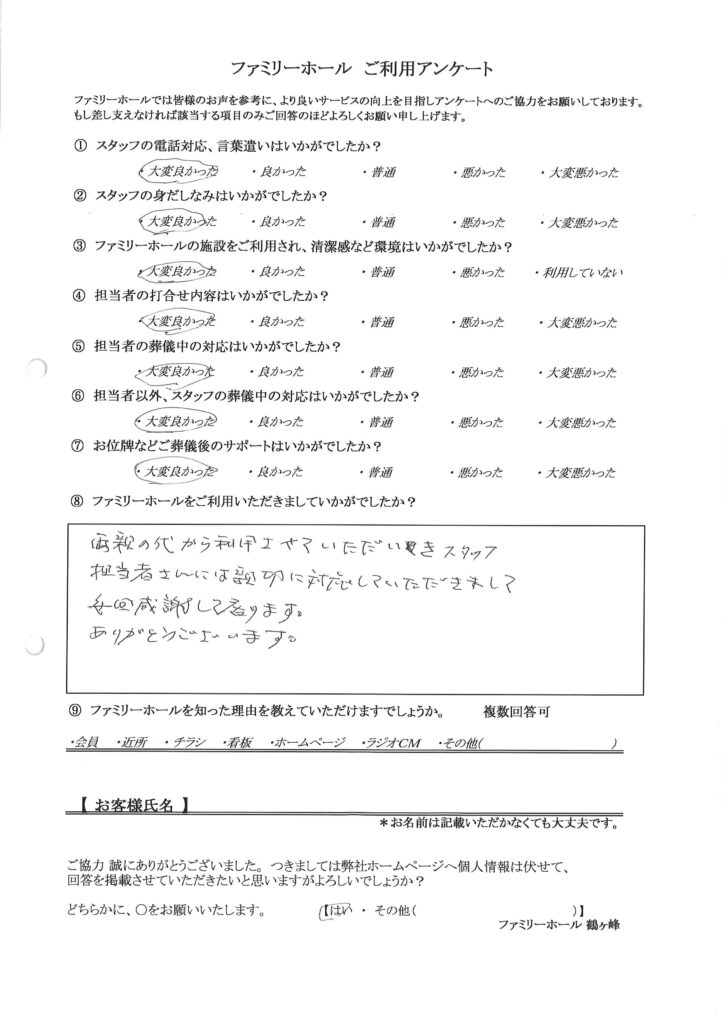 ファミリーホール ご利用アンケート
ファミリーホールでは皆様のお声を参考に、より良いサービスの向上を目指しアンケートへのご協力をお願いしております。
もし差し支えなければ該当する項目のみご回答のほどよろしくお願い申し上げます。
① スタッフの電話対応、言葉遣いはいかがでしたか？
・大変良かった ・良かった ・普通 ・悪かった ・大変悪かった
② スタッフの身だしなみはいかがでしたか？
・大変良かった ・良かった ・普通 ・悪かった ・大変悪かった
③ ファミリーホールの施設をご利用され、清潔感など環境はいかがでしたか？
・大変良かった ・良かった ・普通 ・悪かった ・利用していない
④ 担当者の打合せ内容はいかがでしたか？
・大変良かった ・良かった ・普通 ・悪かった ・大変悪かった
⑤ 担当者の葬儀中の対応はいかがでしたか？
・大変良かった ・良かった ・普通 ・悪かった ・大変悪かった
⑥ 担当者以外、スタッフの葬儀中の対応はいかがでしたか？
・大変良かった ・良かった ・普通 ・悪かった ・大変悪かった
⑦ お位牌などご葬儀後のサポートはいかがでしたか？
・大変良かった ・良かった ・普通 ・悪かった ・大変悪かった
⑧ ファミリーホールをご利用いただきましていかがでしたか？
両親の代から利用させていただいきスタッフ
担当者さんには親切に対応していただきまして
毎回感謝して居ります。
ありがとうございます。
⑨ ファミリーホールを知った理由を教えていただけますでしょうか。 複数回答可
・会員 ・近所 ・チラシ ・看板 ・ホームページ ・ラジオCM ・その他( )
【 お客様氏名 】
＊お名前は記載いただかなくても大丈夫です。
ご協力 誠にありがとうございました。つきましては弊社ホームページへ個人情報は伏せて、
回答を掲載させていただきたいと思いますがよろしいでしょうか？
どちらかに、〇をお願いいたします。 【はい ・ その他( )】
ファミリーホール 鶴ヶ峰